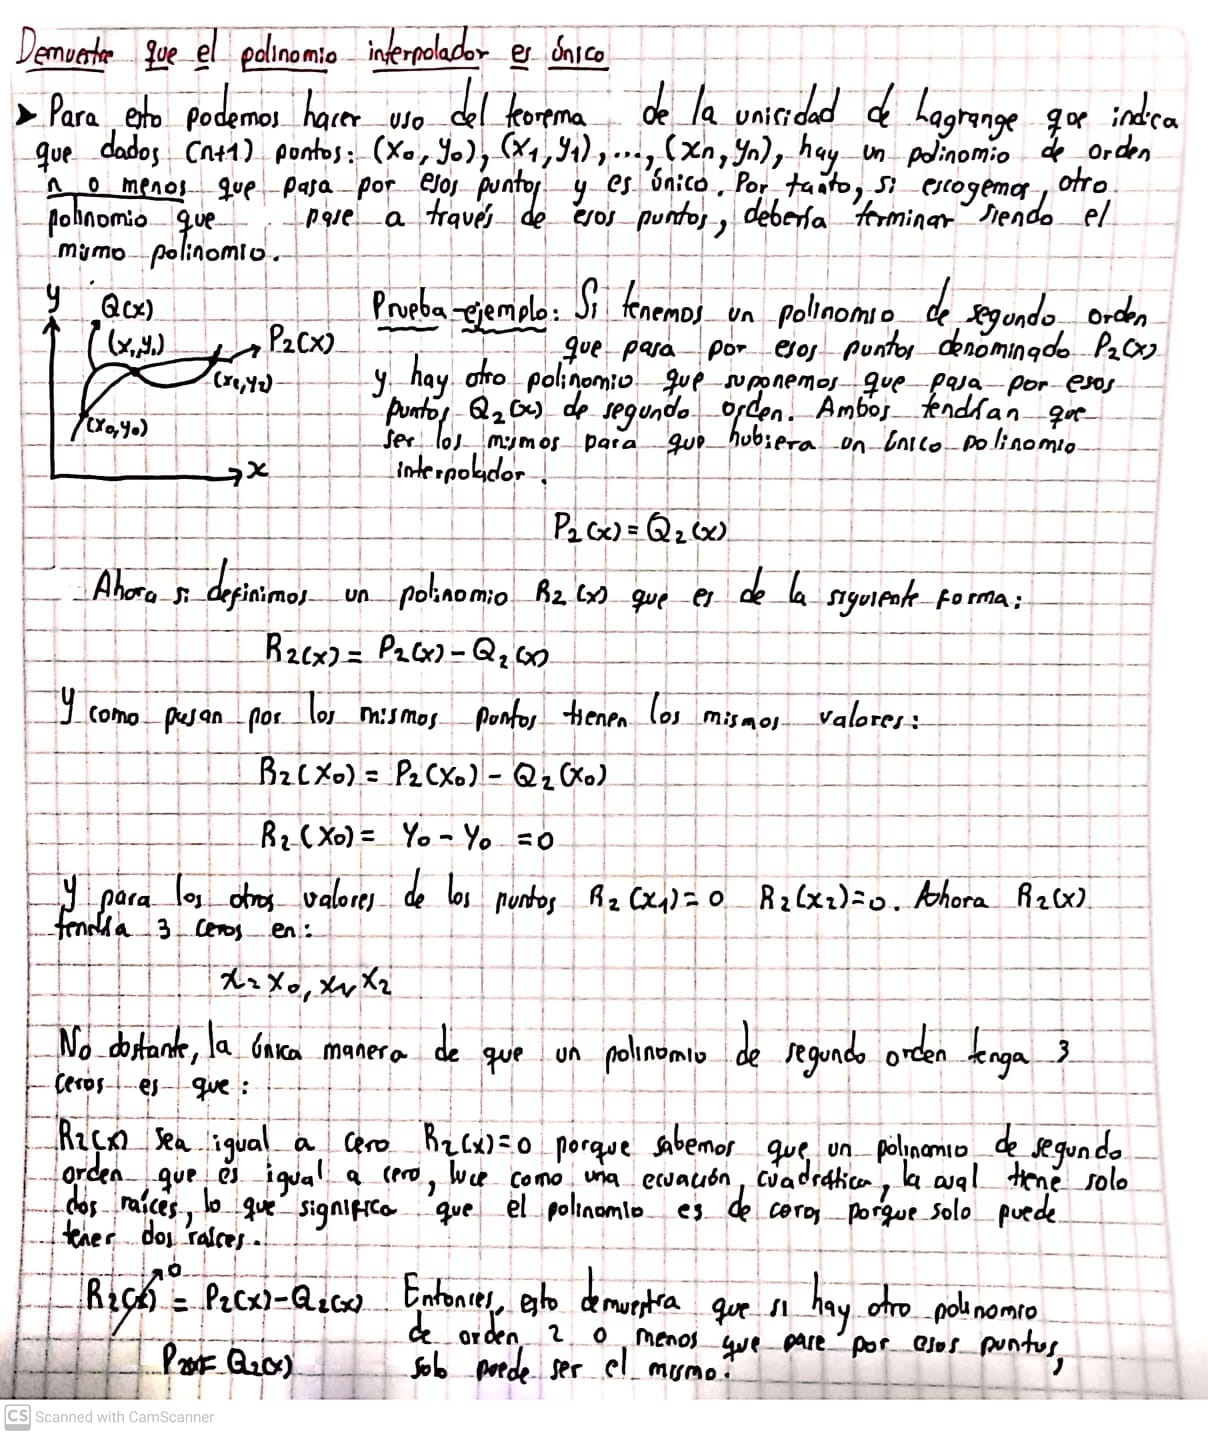 Demuestre que el polinomio interpolador es único
➤ Para esto podemos hacer uso del teorema de la unicidad de Lagrange que indica
que dados (n+1) puntos: (x₀, y₀), (x₁, y₁), ..., (xn, yn), hay un polinomio de orden
n o menos que pasa por esos puntos y es único. Por tanto, si escogemos, otro
polinomio que pase a través de esos puntos, debería terminar siendo el
mismo polinomio.
y
Q(x)
(x₁, y₁)
P₂(x)
(x₂, y₂)
(x₀, y₀)
x
Prueba-ejemplo: Si tenemos un polinomio de segundo orden
que pasa por esos puntos denominado P₂(x)
y hay otro polinomio que suponemos que pasa por esos
puntos Q₂(x) de segundo orden. Ambos tendrían que
ser los mismos para que hubiera un único polinomio
interpolador.
P₂(x) = Q₂(x)
Ahora si definimos un polinomio R₂(x) que es de la siguiente forma:
R₂(x) = P₂(x) - Q₂(x)
Y como pasan por los mismos puntos tienen los mismos valores:
R₂(x₀) = P₂(x₀) - Q₂(x₀)
R₂(x₀) = y₀ - y₀ = 0
Y para los otros valores de los puntos R₂(x₁) = 0 R₂(x₂) = 0. Ahora R₂(x)
tendría 3 ceros en:
x = x₀, x₁, x₂
No obstante, la única manera de que un polinomio de segundo orden tenga 3
ceros es que:
R₂(x) sea igual a cero R₂(x) = 0 porque sabemos que un polinomio de segundo
orden que es igual a cero, luce como una ecuación cuadrática, la cual tiene solo
dos raíces, lo que significa que el polinomio es de ceros porque solo puede
tener dos raíces.
0
R₂(x) = P₂(x) - Q₂(x)
P₂(x) = Q₂(x)
Entonces, esto demuestra que si hay otro polinomio
de orden 2 o menos que pase por esos puntos,
solo puede ser el mismo.
CS Scanned with CamScanner